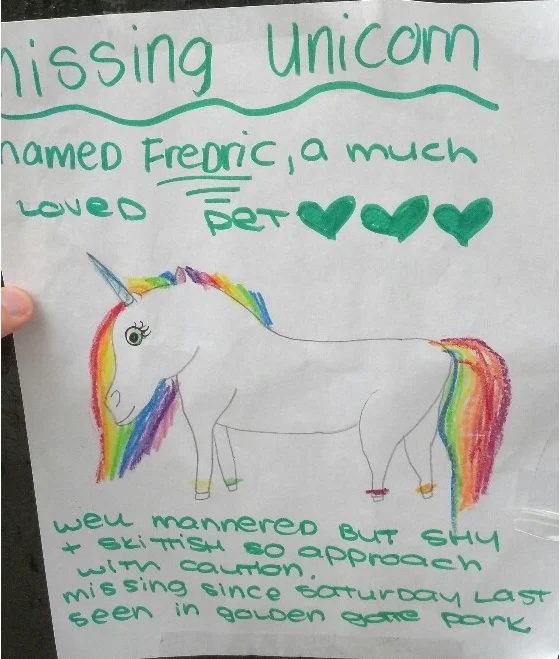 missing unicorn
named Fredric, a much
loved pet
well mannered but shy
+ skittish so approach
with caution.
missing since saturday last
seen in golden gate park